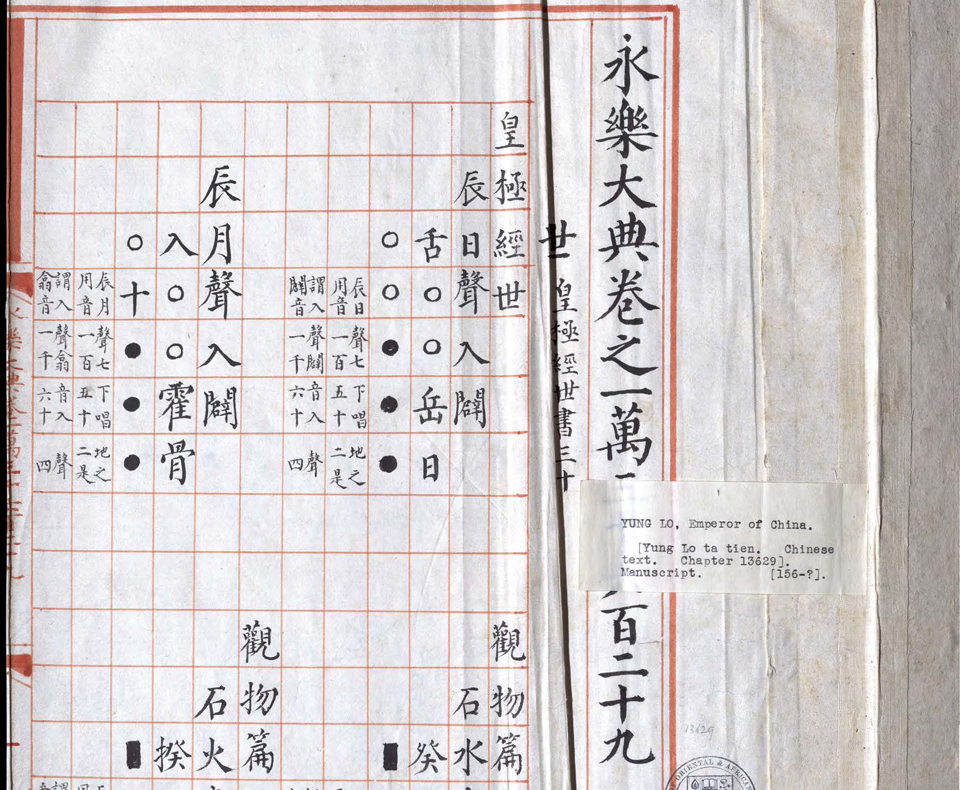 永樂大典卷之一萬
百二十九
世 皇極經世書三十
皇極經世 觀物篇
辰日聲入闢 石水
舌○○岳日 癸
○○●●● ▮
辰日聲七下唱地之
用音一百五十二是
謂入聲闢音入聲
闢音一千六十四
觀物篇
辰月聲入闢 石火
入○○霍骨 揆
○十●●● ▮
辰月聲七下唱地之
用音一百五十二是
謂入聲翕音入聲
翕音一千六十四
YUNG LO, Emperor of China.
[Yung Lo ta tien. Chinese
text. Chapter 13629].
Manuscript. [156-?].
13629
ORIENTAL &